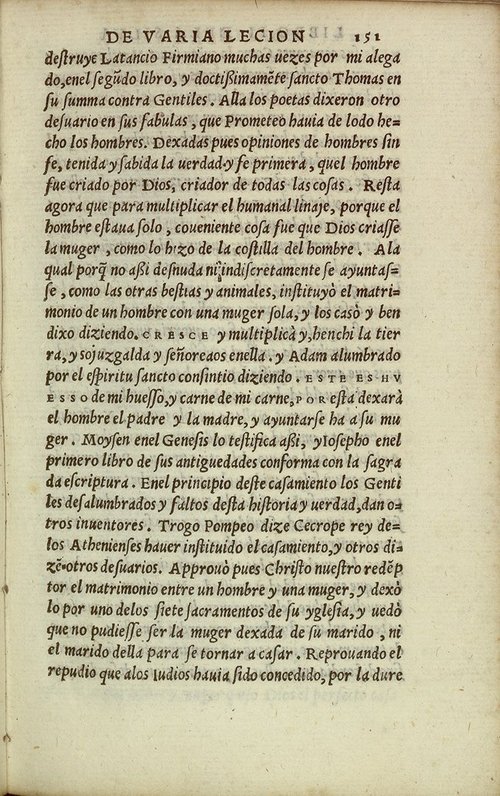 DE VARIA LECION 151
destruye Latancio Firmiano muchas uezes por mi alega
do,enel segũdo libro, y doctißimamẽte sancto Thomas en
su summa contra Gentiles. Alla los poetas dixeron otro
desuario en sus fabulas, que Prometeo hauia de lodo he=
cho los hombres. Dexadas pues opiniones de hombres sin
fe, tenida y sabida la uerdad y fe primera, quel hombre
fue criado por Dios, criador de todas las cosas. Resta
agora que para multiplicar el humanal linaje, porque el
hombre estaua solo, coueniente cosa fue que Dios criasse
la muger, como lo hizo de la costilla del hombre. A la
qual porq̃ no aßi desnuda ni indiscretamente se ayuntas=
se, como las otras bestias y animales, instituyò el matri=
monio de un hombre con una muger sola, y los casò y ben
dixo diziendo. CRESCE y multiplicà y,henchi la tier
ra, y sojuzgalda y señoreaos enella. y Adam alumbrado
por el espiritu sancto consintio diziendo. ESTE ES HV
ESSO de mi huesso, y carne de mi carne, POR esta dexarà
el hombre el padre y la madre, y ayuntarse ha a su mu
ger. Moysen enel Genesis lo testifica aßi, yIosepho enel
primero libro de sus antiguedades conforma con la sagra
da escriptura. Enel principio deste casamiento los Genti
les desalumbrados y faltos desta historia y uerdad, dan o=
tros inuentores. Trogo Pompeo dize Cecrope rey de=
los Athenienses hauer instituido el casamiento,y otros di=
zẽ otros desuarios. Approuò pues Christo nuestro redẽp
tor el matrimonio entre un hombre y una muger, y dexò
lo por uno delos siete sacramentos de su yglesia, y uedò
que no pudiesse ser la muger dexada de su marido, ni
el marido della para se tornar a casar. Reprouando el
repudio que alos Iudios hauia sido concedido, por la dure